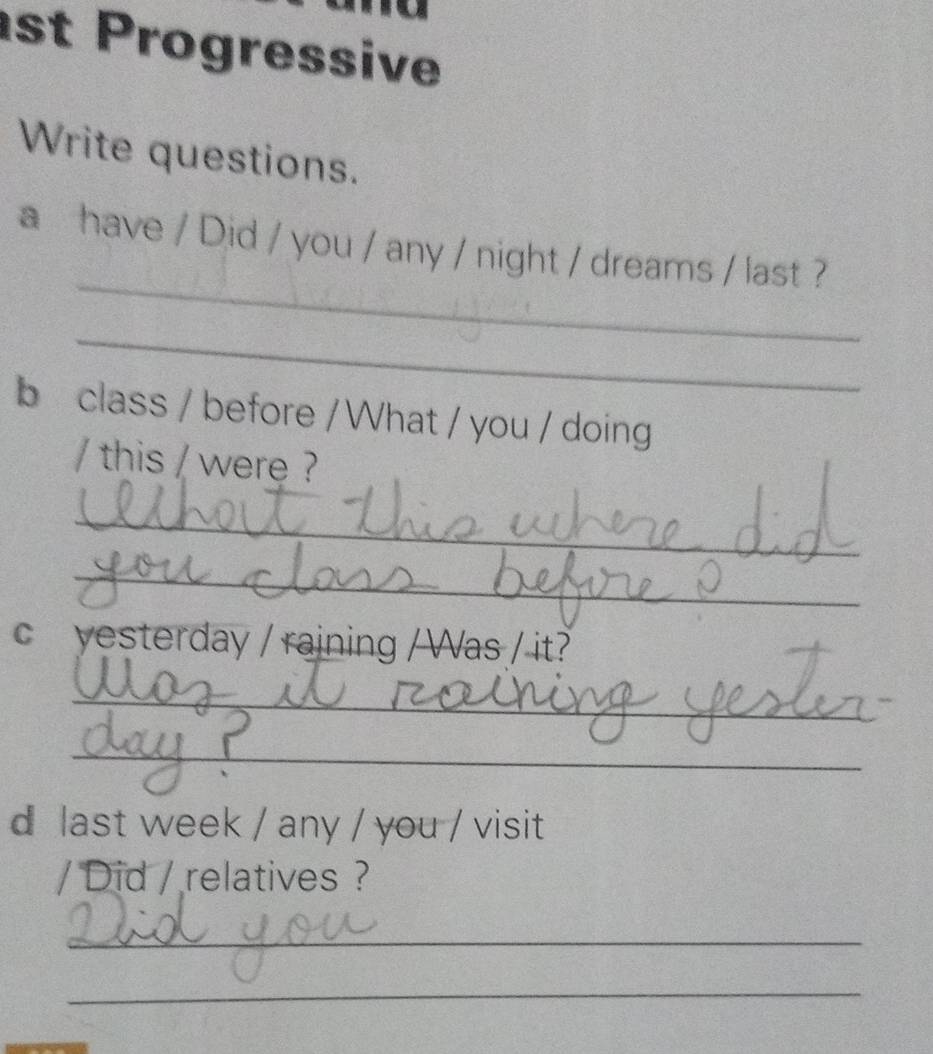 ast Progressive
Write questions.
a have / Did / you / any / night / dreams / last ?
b class / before / What / you / doing
/ this / were ?
What this where did
you class before?
c yesterday / raining / Was / it?
Was it raining yester-
day?
d last week / any / you / visit
/ Did / relatives ?
Did you